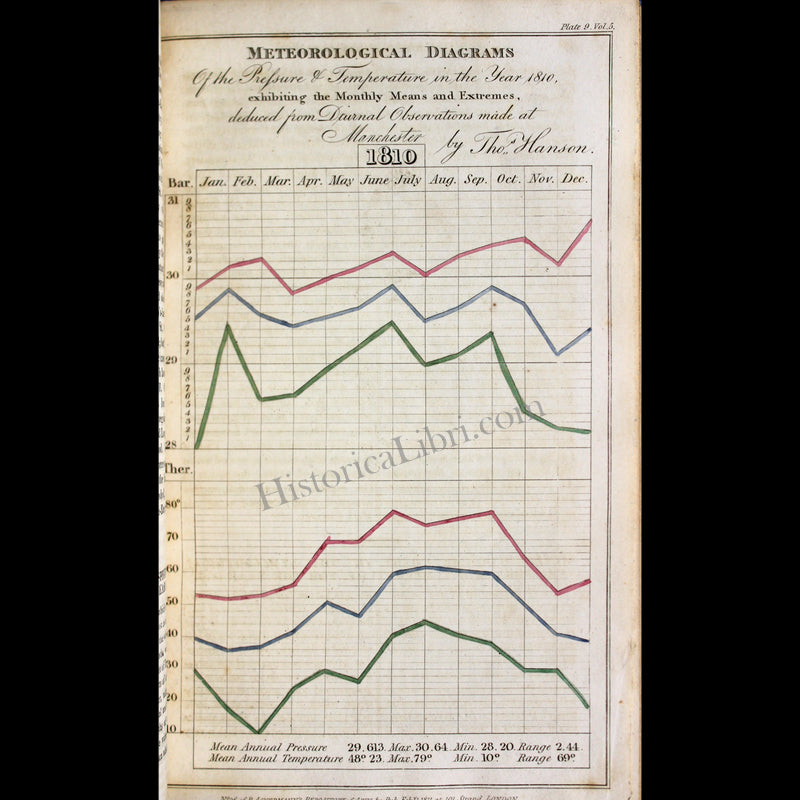 Plate 9. Vol. 5.
METEOROLOGICAL DIAGRAMS
Of the Pressure & Temperature in the Year 1810,
exhibiting the Monthly Means and Extremes,
deduced from Diurnal Observations made at
Manchester by Thos. Hanson.
1810
Bar. Jan. Feb. Mar. Apr. May June July Aug. Sep. Oct. Nov. Dec.
31
9
8
7
6
5
4
3
2
1
30
9
8
7
6
5
4
3
2
1
29
9
8
7
6
5
4
3
2
1
28
HistoricaLibri.com
Ther.
80°
70
60
50
40
30
20
10
Mean Annual Pressure 29.613. Max. 30.64. Min. 28.20. Range 2.44.
Mean Annual Temperature 48° 23. Max. 79° Min. 10° Range 69°